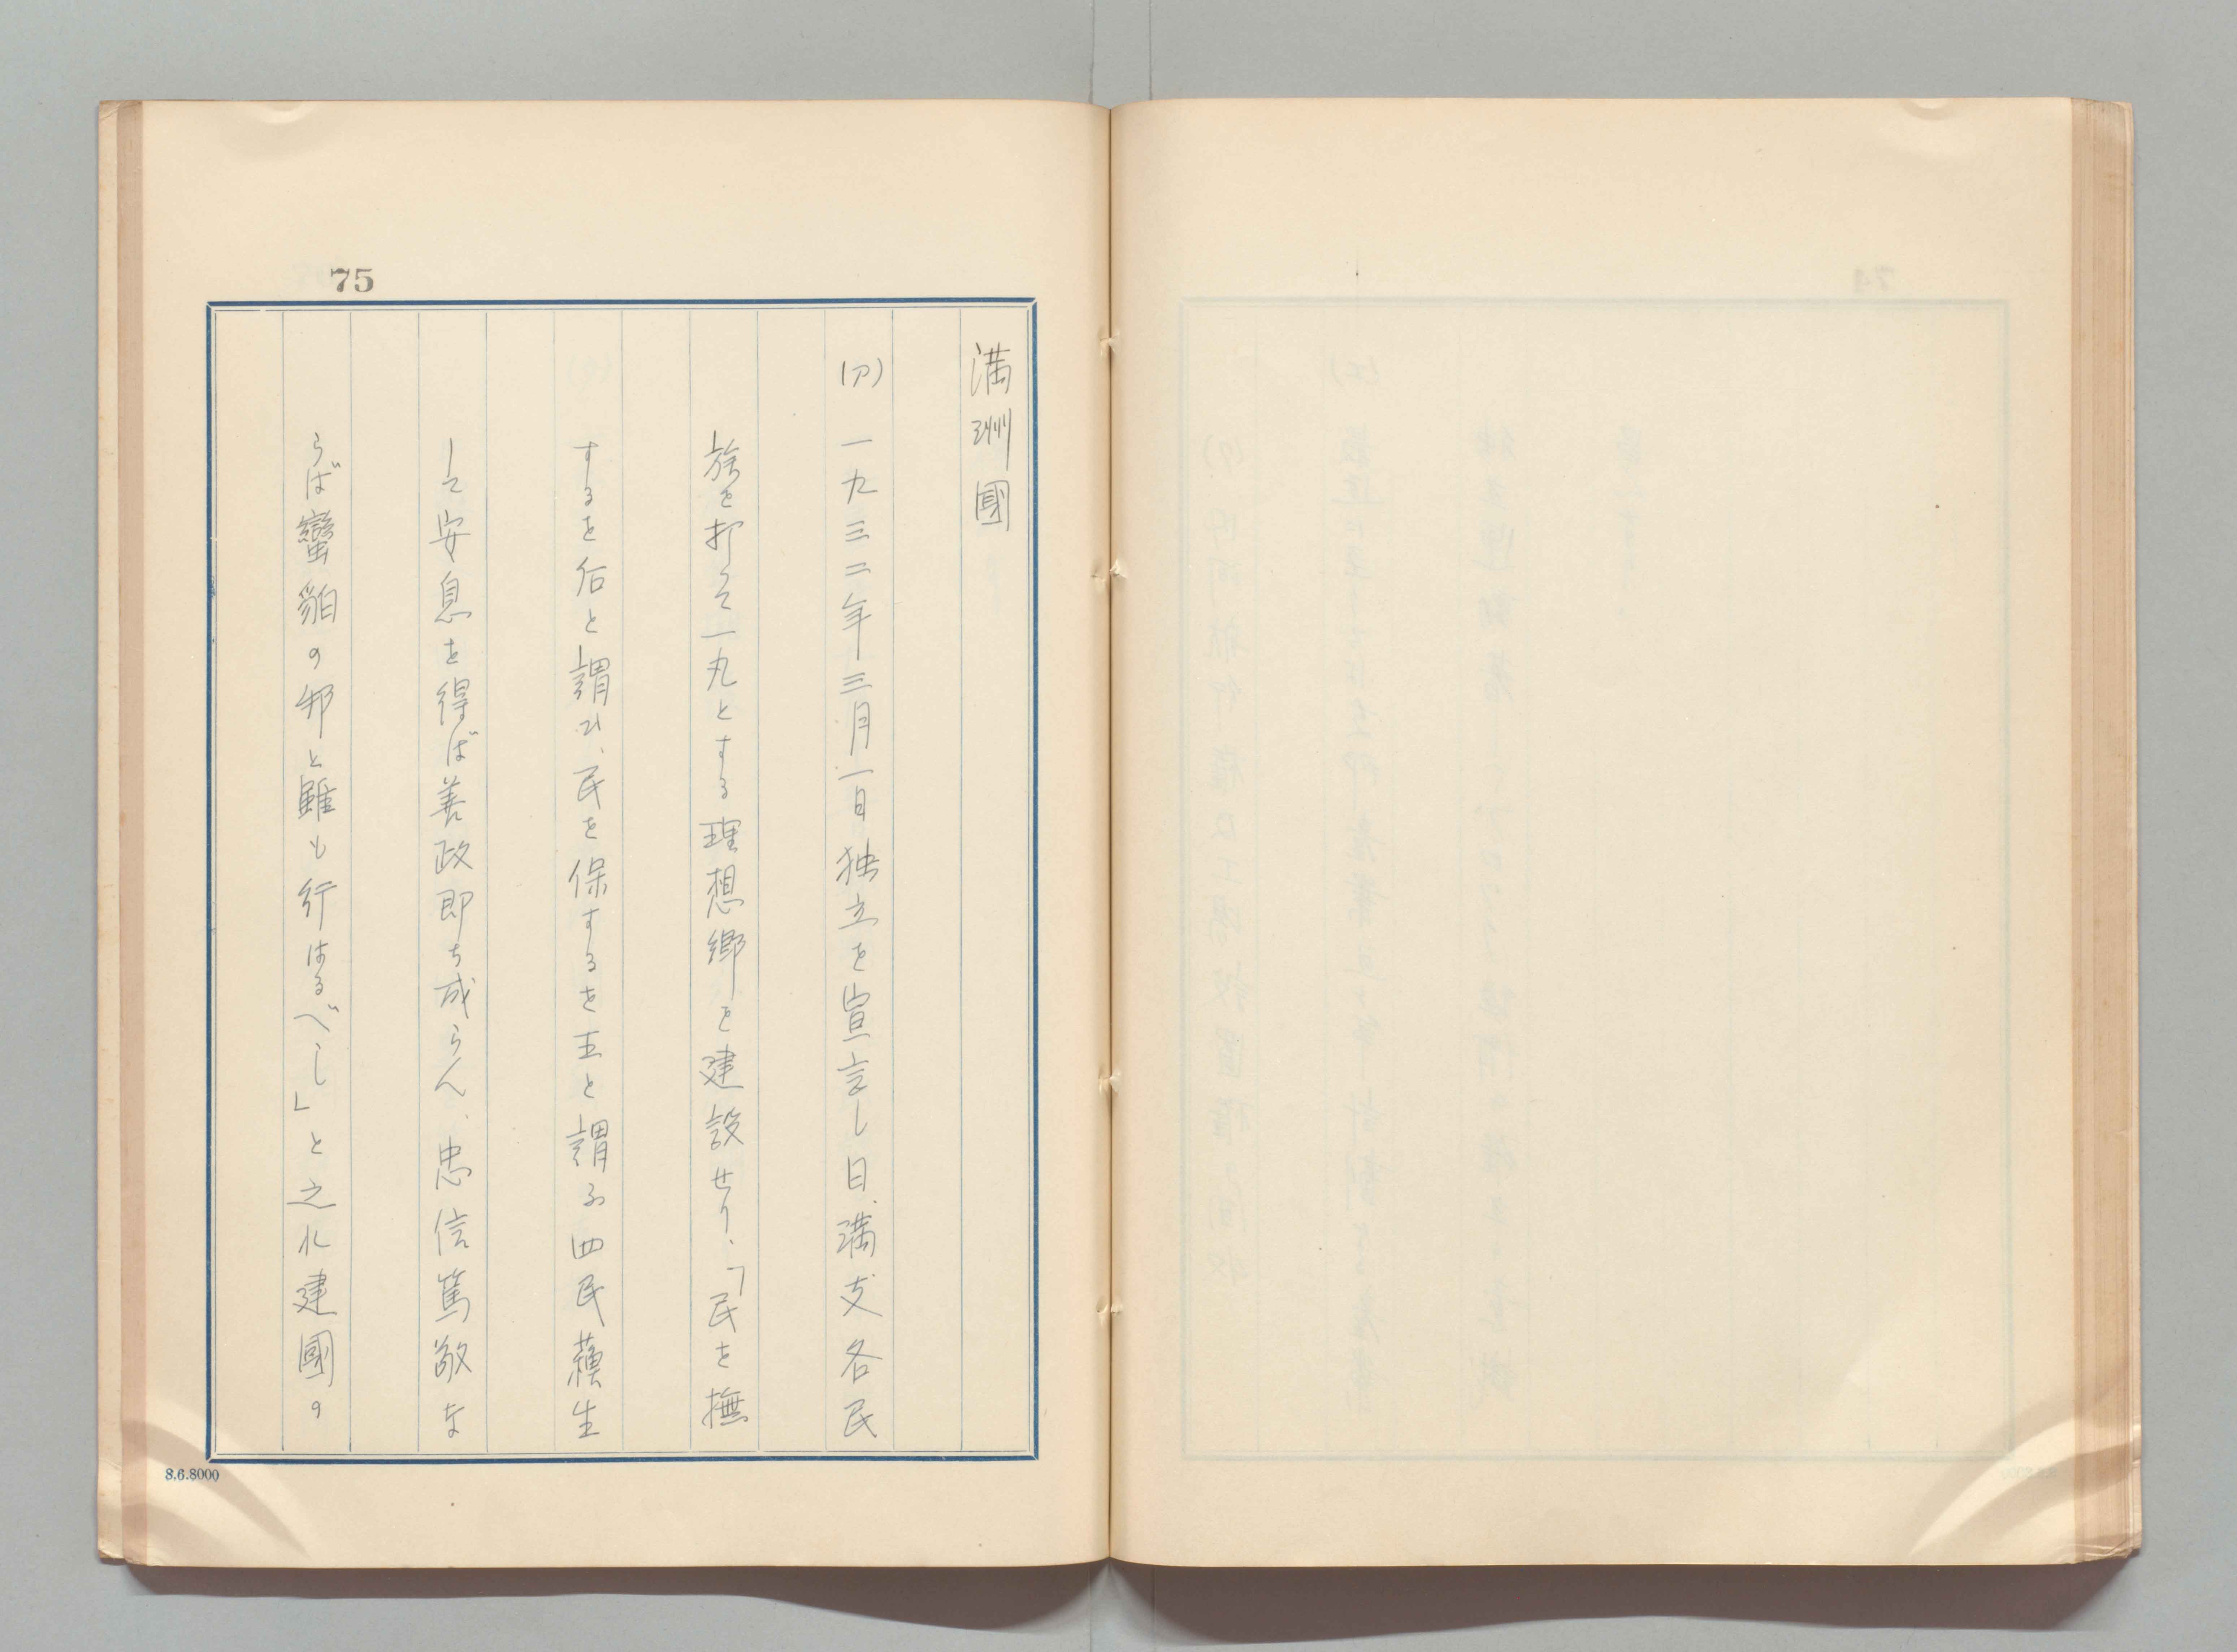 75
満洲國
(ア) 一九三二年三月一日独立を宣言し日、満支各民
族を打って一丸とする理想郷を建設せり、「民を撫
するを后と謂ひ、民を保するを主と謂ふ四民蘓生
して安息を得ば善政即ち成らん、忠信篤敬な
らば蠻貊の邦と雖も行はるべし」と之れ建國の
8.6.8000